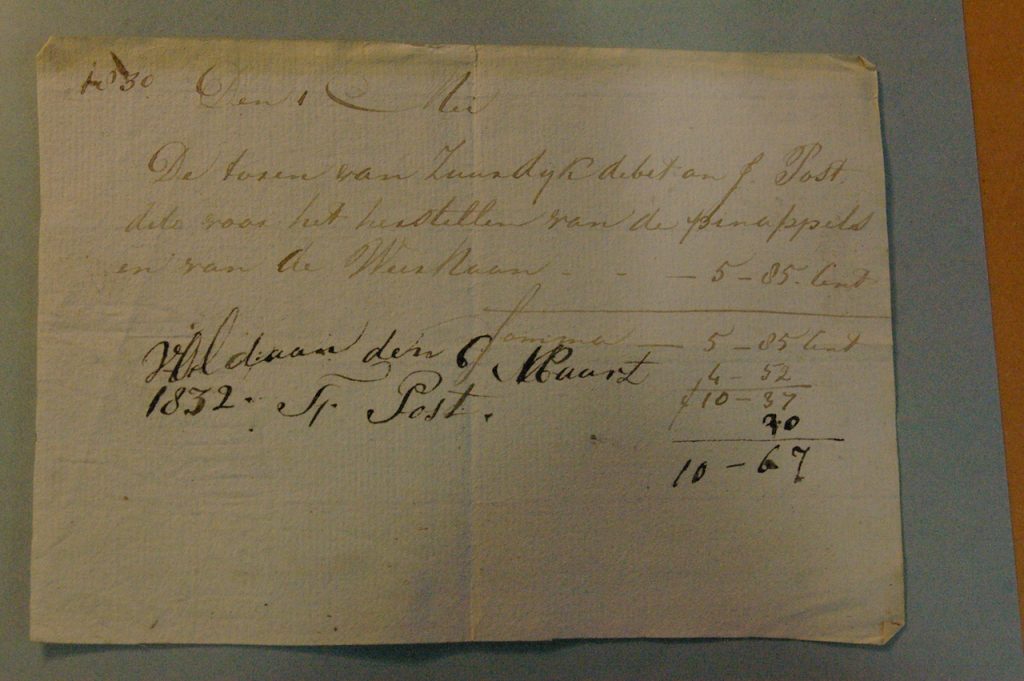 No 30 Den 1 Mei
De toren van Zuurdyk debet an J. Post
dito voor het herstellen van de pinappels
en van de Weerhaan - - - 5 - 85 Cent
Somma - 5 - 85 Cent
4 - 52
f 10 - 37
30
10 - 67
Voldaan den 9 Maart
1832. F. Post.